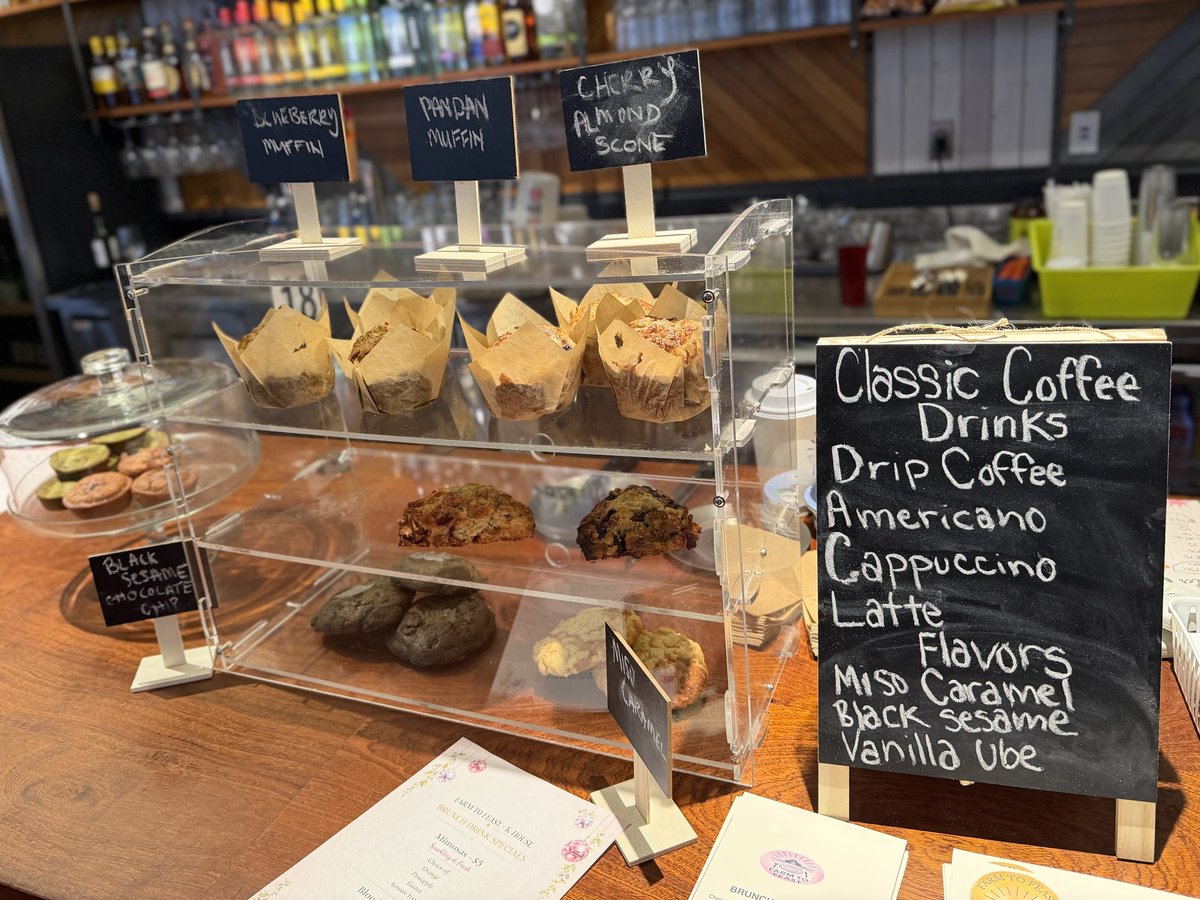 BLUEBERRY
MUFFIN
PANDAN
MUFFIN
CHERRY
ALMOND
SCONE
18
BLACK
SESAME
CHOCOLATE
CHIP
MISO
CARAMEL
Classic Coffee
Drinks
Drip Coffee
Americano
Cappuccino
Latte
Flavors
Miso Caramel
Black sesame
Vanilla Ube
FARM TO FEAST - K HOUSE
BRUNCH DRINK SPECIALS
Mimosas - $5
Sparkling & Fresh
Choice of:
Orange
Pineapple
Guava
FARM TO
FEAST
BRUNCH
FARM TO FEAST